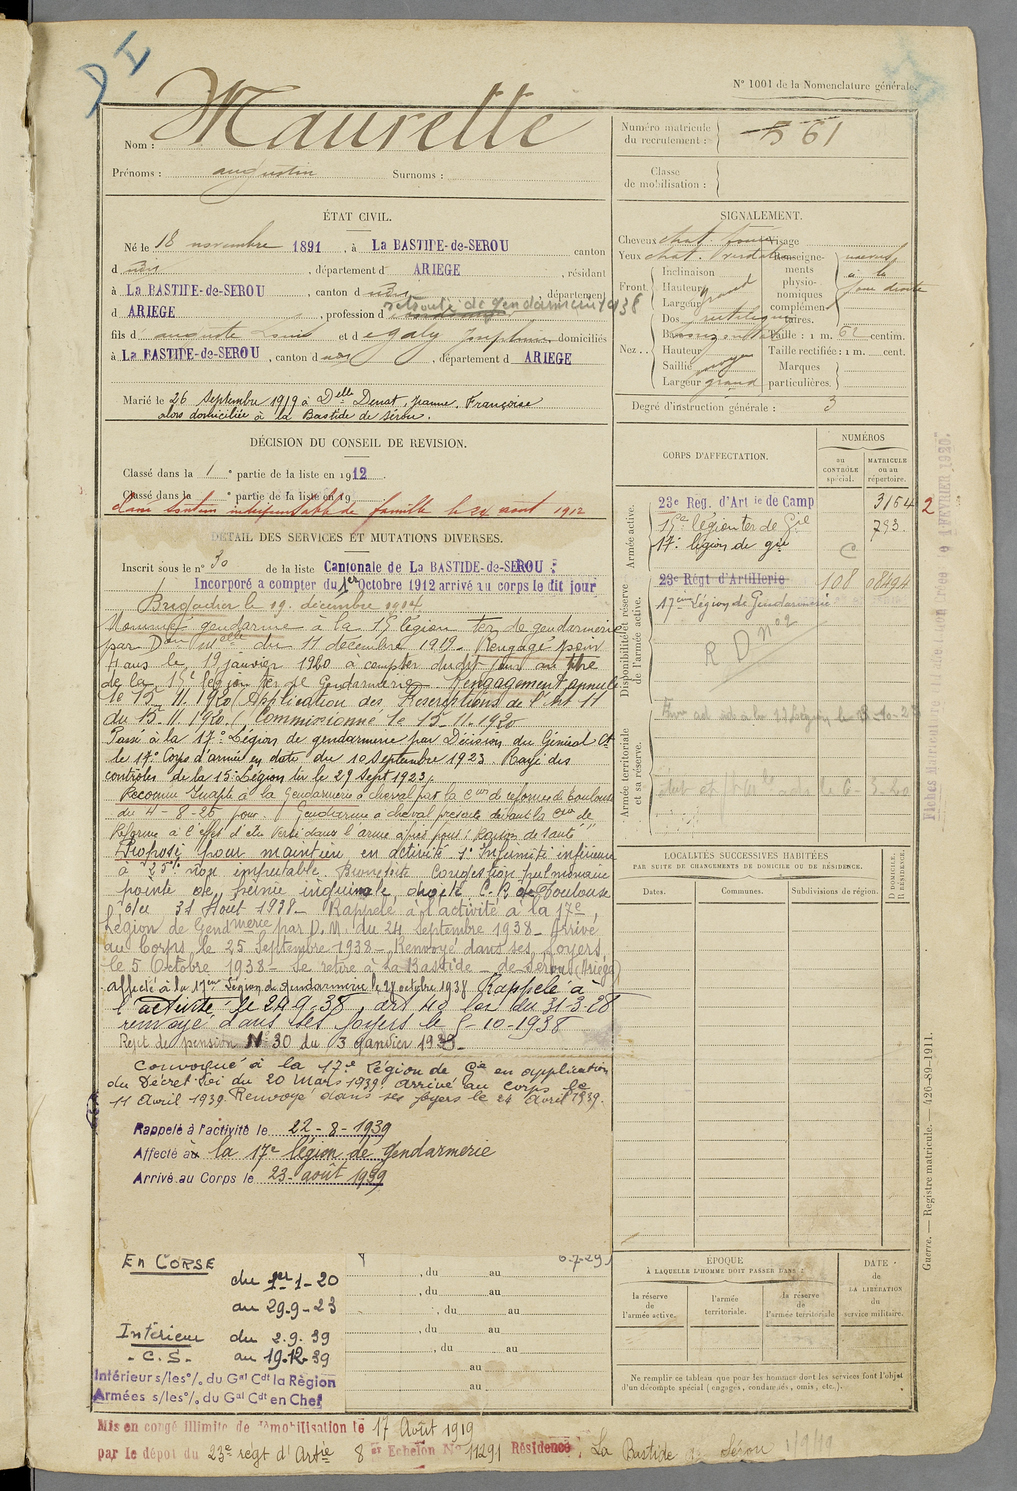 D I
N° 1001 de la Nomenclature générale.
Nom : Maurette
Prénoms : augustin Surnoms :
Numéro matricule du recrutement : 561
Classe de mobilisation :
ÉTAT CIVIL.
Né le 18 novembre 1891, à La BASTIDE-de-SEROU canton
d dudit, département d ARIEGE, résidant
à La BASTIDE-de-SEROU, canton d dudit, département
d ARIEGE, profession d retraité de gendarmerie 1938
fils d auguste Louis et d Egaly Joséphine domiciliés
à La BASTIDE-de-SEROU, canton d, département d ARIEGE
Marié le 26 Septembre 1919 à Delle Denat, Jeanne, Françoise
alors domiciliée à la Bastide de Sérou.
SIGNALEMENT.
Cheveux chat. Visage
Yeux chat. Renseignements physionomiques complémentaires.
Front Inclinaison
Hauteur grand
Largeur
Nez Dos rectiligne
Base
Hauteur
Saillie moyen
Largeur grand
à la joue droite
Taille : 1 m. 62 centim.
Taille rectifiée : 1 m. cent.
Marques particulières.
Degré d'instruction générale : 3
DÉCISION DU CONSEIL DE REVISION.
Classé dans la 1e partie de la liste en 1912
Classé dans la 1e partie de la liste en 19
soutien indispensable de famille le 24 août 1912
DÉTAIL DES SERVICES ET MUTATIONS DIVERSES.
Inscrit sous le n° 30 de la liste Cantonale de La BASTIDE-de-SEROU :
Incorporé a compter du 1er Octobre 1912 arrivé au corps le dit jour
Brigadier le 19 décembre 1914
Nommé gendarme à la 15e légion ter de gendarmerie
par Don Mlle du 11 décembre 1919. Rengagé pour
4 ans le 19 janvier 1920 à compter dudit jour au titre
de la 15e légion ter de Gendarmerie. Rengagement annulé
le 15-11-1920 (Application des Prescriptions de l'Art 11
du 15-11-1920.) Commissionné le 15-11-1920
Passé à la 17e Légion de gendarmerie par Décision du Général Ct
le 17e Corps d'armée en date du 10 Septembre 1923. Rayé des
contrôles de la 15e Légion ter le 29 Sept 1923.
Reconnu Inapte à la Gendarmerie à cheval par la Con de réforme de Toulouse
du 4-8-25 pour : Gendarme à cheval présenté devant la Con de
Réforme à l'effet d'être versé dans l'arme à pied pour "Raison de santé"
Proposé pour maintien en activité 1° Infirmité inférieure
à 25% non imputable. Bronchite Congestion pulmonaire
pointe de hernie inguinale droite C.R. de Toulouse
31 Août 1938 - Rappelé à l'activité à la 17e
Légion de Gendmerie par D.M. du 24 Septembre 1938 - Arrivé
au Corps le 25 Septembre 1938 - Renvoyé dans ses foyers
le 5 Octobre 1938 - Se retire à La Bastide-de-Sérou (Ariège)
affecté à la 17eme Légion de gendarmerie le 28 octobre 1938 Rappelé à
l'activité le 24-9-38 art 40 loi du 31-3-28
renvoyé dans ses foyers le 5-10-1938
Rept de pension N° 30 du 3 Janvier 1939-
Convoqué à la 17e Légion de Gie en application
du Décret Loi du 20 Mars 1939 arrivé au corps le
11 Avril 1939. Renvoyé dans ses foyers le 24 Avril 1939.
Rappelé à l'activité le 22-8-1939
Affecté à la 17e légion de Gendarmerie
Arrivé au Corps le 23 août 1939
CORPS D'AFFECTATION.
NUMÉROS
au CONTRÔLE spécial.
MATRICULE ou au répertoire.
Armée active.
23e Rég. d'Artie de Camp 3164 2
15e légion ter de Gie 793.
17e légion de gie
Disponibilité et réserve de l'armée active.
23e Régt d'Artillerie 108 08494
17eme Légion de Gendarmerie
R D n° 2
Armée territoriale et sa réserve.
LOCALITÉS SUCCESSIVES HABITÉES
PAR SUITE DE CHANGEMENTS DE DOMICILE OU DE RÉSIDENCE.
Dates. Communes. Subdivisions de région. D DOMICILE. R RÉSIDENCE.
ÉPOQUE
À LAQUELLE L'HOMME DOIT PASSER DANS :
la réserve de l'armée active.
l'armée territoriale.
la réserve de l'armée territoriale
DATE de LA LIBÉRATION du service militaire.
Ne remplir ce tableau que pour les hommes dont les services font l'objet
d'un décompte spécial (engagés, condamnés, omis, etc.).
Guerre. — Registre matricule. — 426-89-1911.
En CORSE
du 1er-1-20
au 29-9-23
Intérieur du 2.9.39
- C.S. - au 19.12.39
Intérieur s/les% du Gal Cdt la Région
Armées s/les% du Gal Cdt en Chef
, du au
, du au
, du au
, du au
, du au
au
au
Mis en congé illimité de démobilisation le 17 Août 1919
par le dépôt du 23e regt d'Artie 8e Echelon N° 11291 Résidence : La Bastide de Sérou 1/9/19